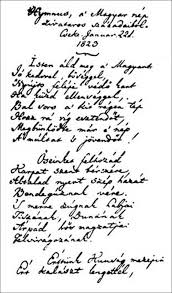 Hymnus, a' Magyar nép
zivataros századaiból.
Cseke, Januar. 22d.
1823
Isten áldd meg a' Magyart
Jó kedvvel, bőséggel,
Nyújts feléje védő kart
Ha küzd ellenséggel;
Bal sors a' kit régen tép
Hozz rá víg esztendőt,
Megbűnhödte már e' nép
A' múltat 's jövendőt!
Őseinket felhozád
Kárpát szent bérczére,
Általad nyert szép hazát
Bendegúznak vére.
'S merre zúgnak habjai
Tiszának, Dunának,
Árpád hős magzatjai
Felvirágozának.
Értünk Kunság mezein
Ért kalászt lengettél,